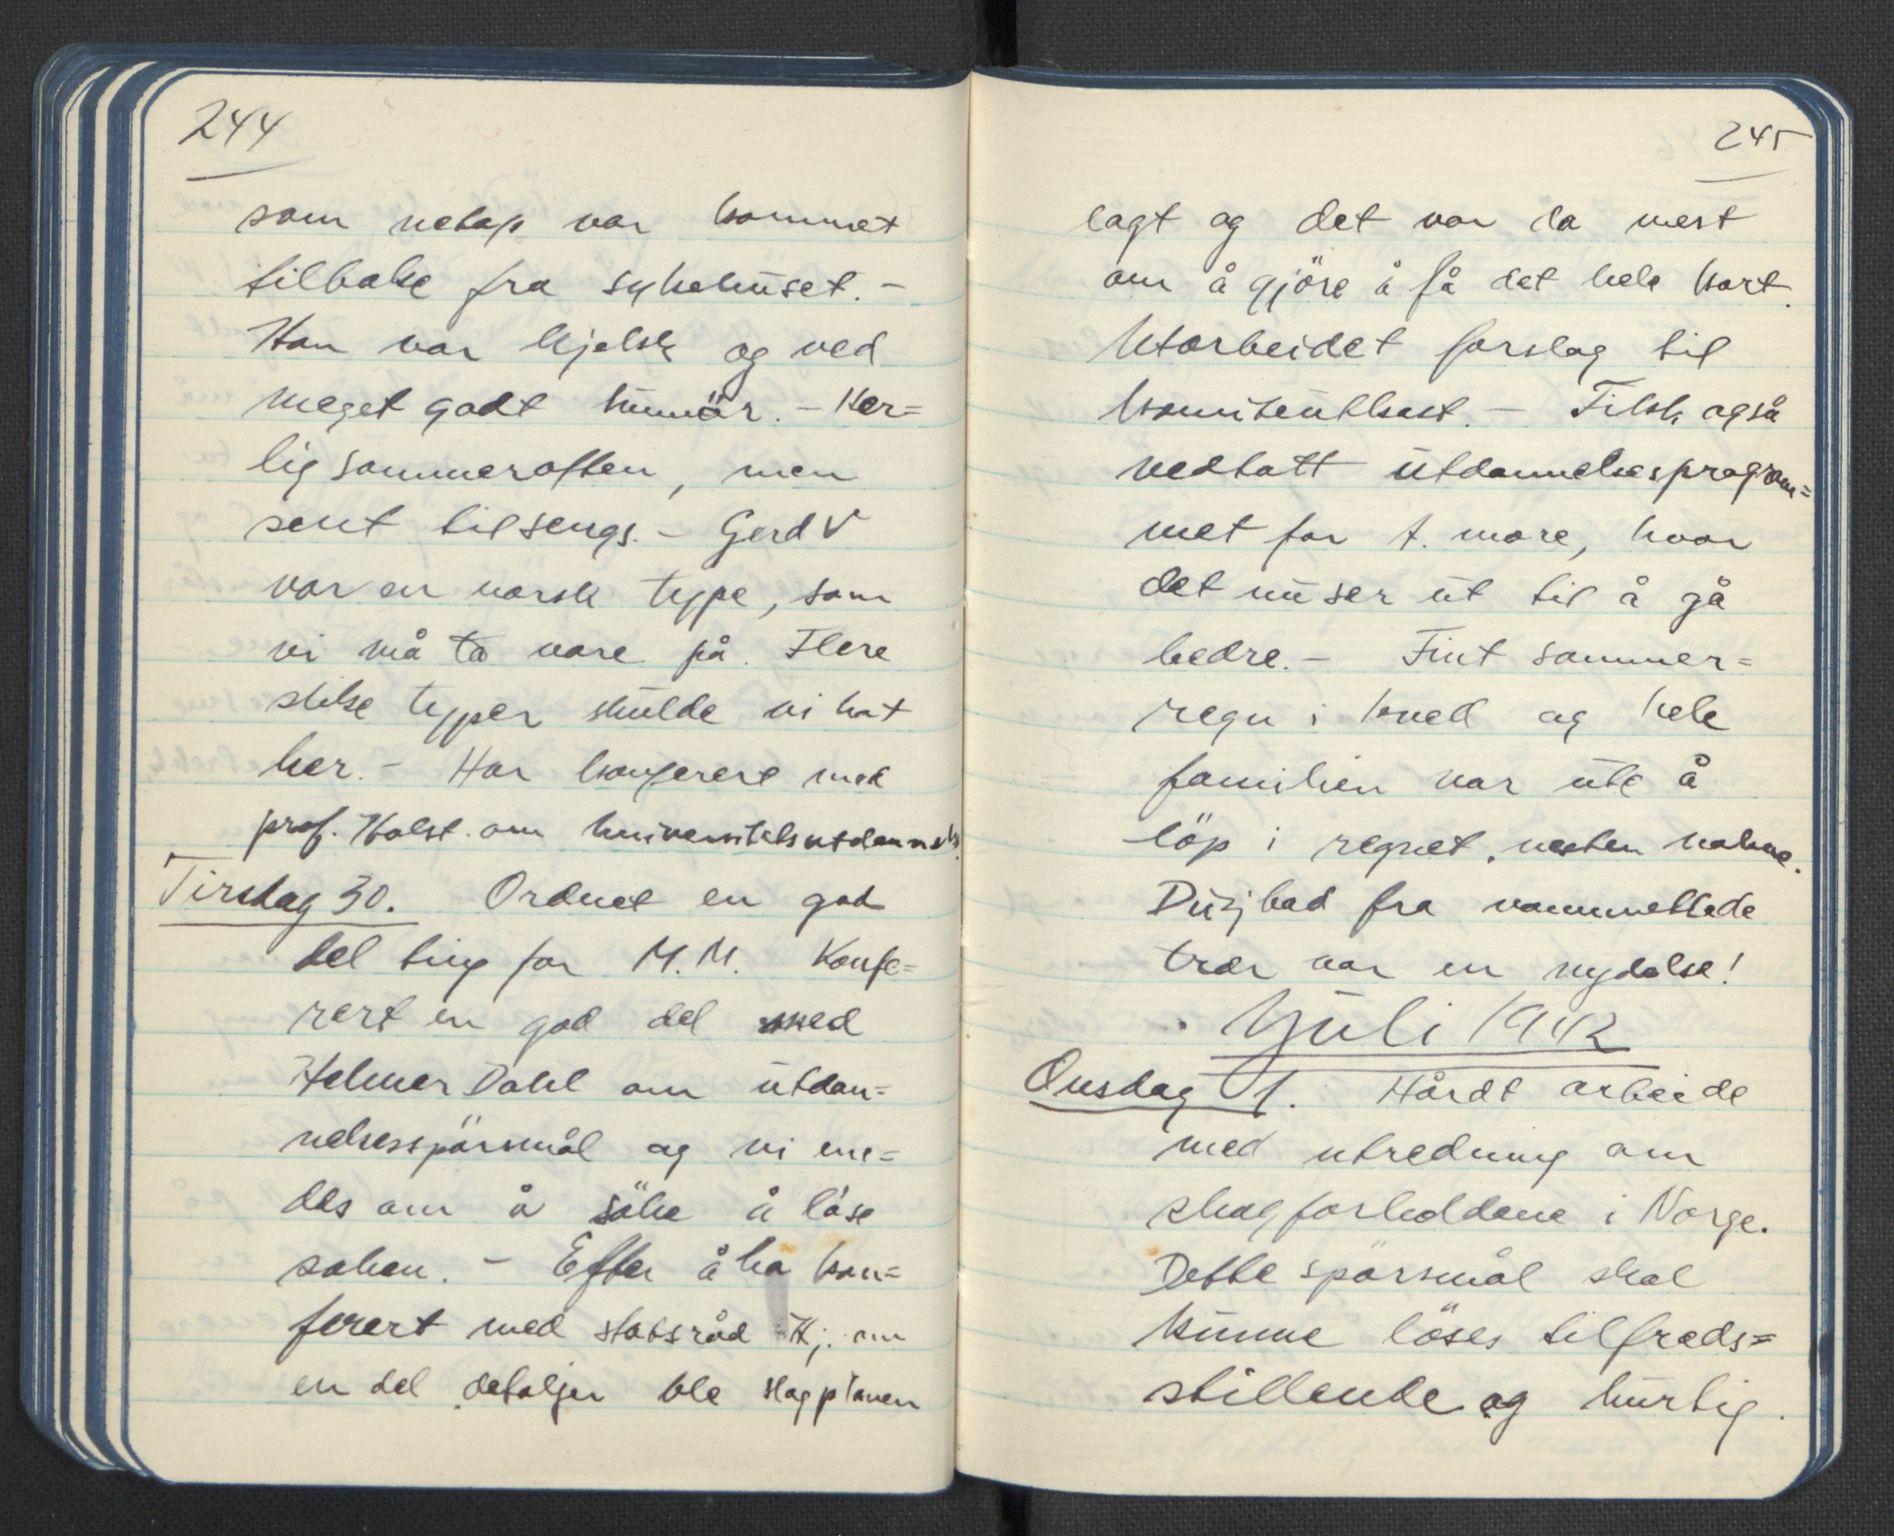 244
som netop var kommet
tilbake fra sykehuset. -
Han var kjekk og ved
meget godt humör. - Her=
lig sommeraften, men
sent tilsengs. - Gerd V
var en norsk type, som
vi må ta vare på. Flere
slike typer skulde vi hat
her. - Har konferert med
prof. Holst. om universitetsutdannels.
Tirsdag 30. Ordnet en god
del ting for M.M. Konfe=
rert en god del med
Helmer Dahl om utdan=
nelsesspörsmål og vi ene=
des om å söke å löse
saken. - Efter å ha kon=
ferert med statsråd Hj. om
en del detaljer ble slagplanen
245
lagt og det var da mest
om å gjöre å få det hele klart.
Utarbeidet forslag til
komiteutkast. - Fikk også
vedtatt utdannelsesprogram=
met for f. more, hvor
det nu ser ut til å gå
bedre. - Fint sommer=
regn i kveld og hele
familien var ute å
löp i regnet, nesten nakne.
Dusjbad fra vannmettede
trær var en nydelse!
Juli 1942
Onsdag 1. Hårdt arbeide
med utredning om
skogforholdene i Norge.
Dette spörsmål skal
kunne löses tilfreds=
stillende og hurtig.